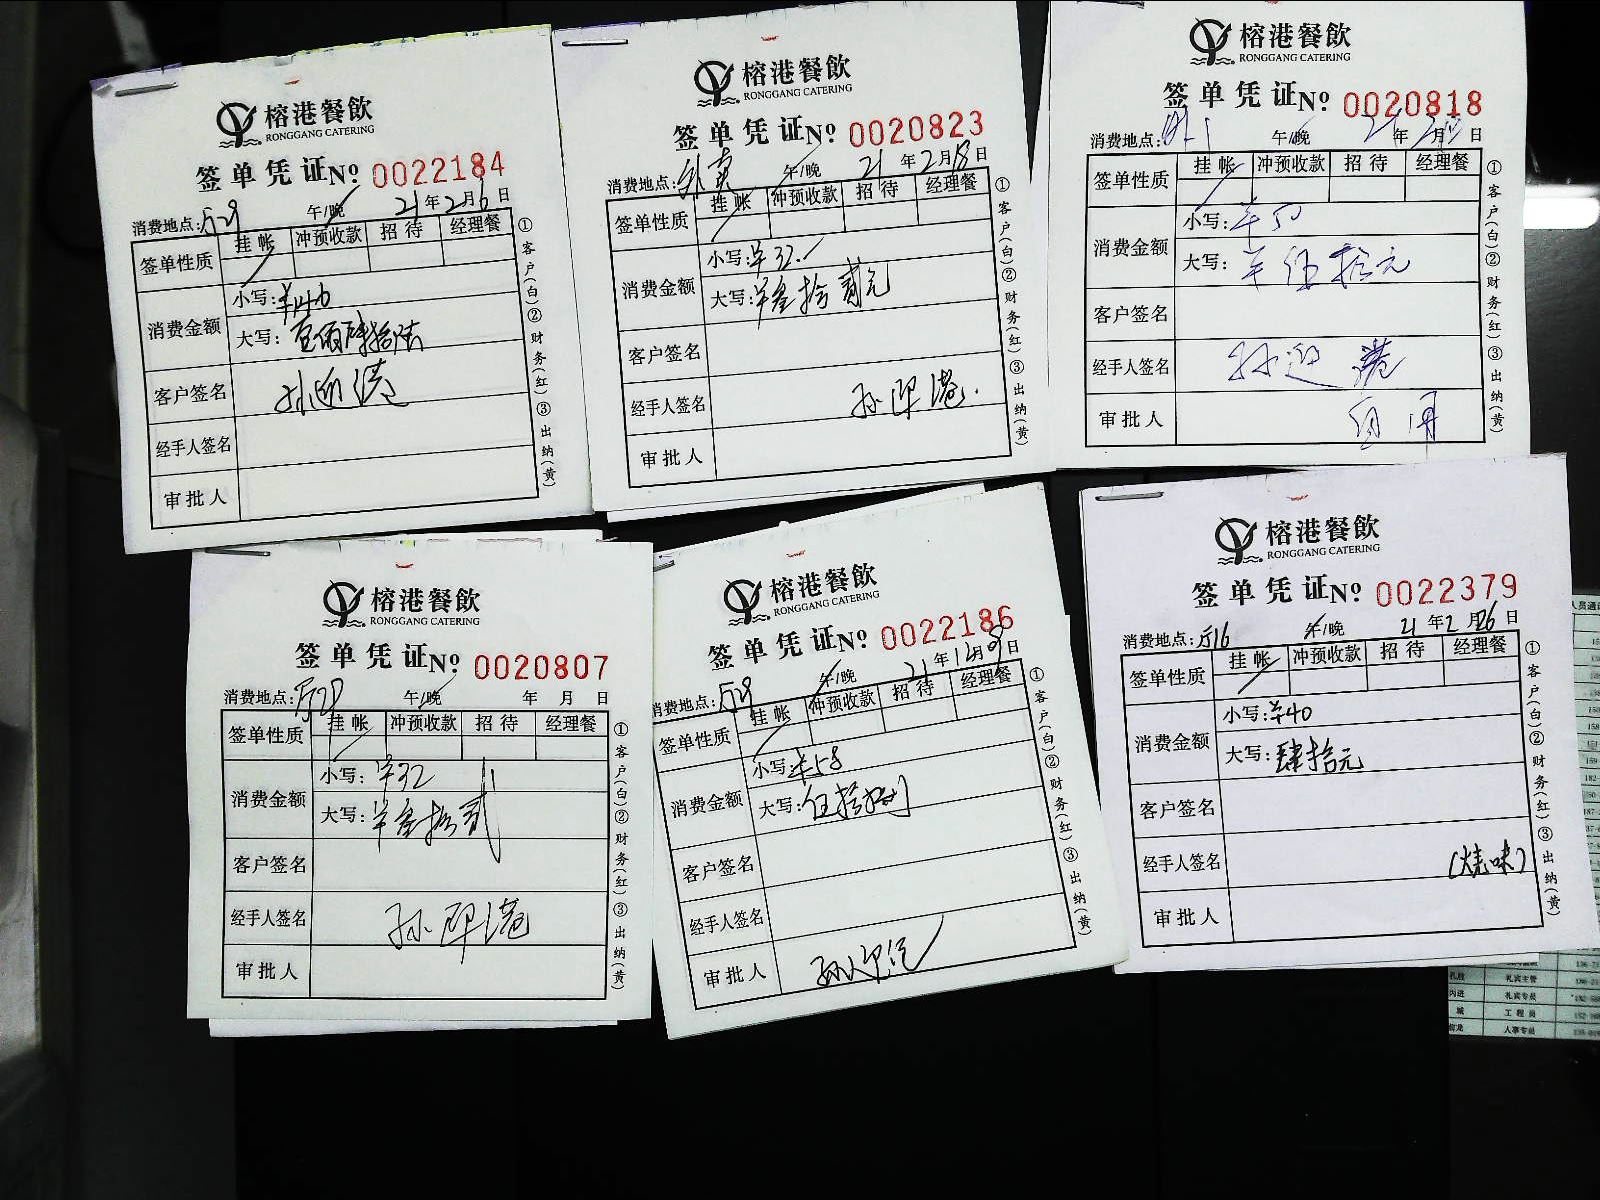 榕港餐飲
RONGGANG CATERING
签单凭证No 0022184
消费地点:厅29 午/晚 21年2月6日
签单性质 挂帐 冲预收款 招待 经理餐
消费金额 小写:¥146
大写:壹佰肆拾陆
客户签名 孙迎港
经手人签名
审批人
①客户(白)②财务(红)③出纳(黄)
榕港餐飲
RONGGANG CATERING
签单凭证No 0020823
消费地点: 午/晚 21年2月18日
签单性质 挂帐 冲预收款 招待 经理餐
消费金额 小写:¥32.
大写:¥叁拾贰元
客户签名
经手人签名 孙迎港.
审批人
①客户(白)②财务(红)③出纳(黄)
榕港餐飲
RONGGANG CATERING
签单凭证No 0020818
消费地点: 午/晚 21年2月 日
签单性质 挂帐 冲预收款 招待 经理餐
消费金额 小写:¥50
大写:¥伍拾元
客户签名
经手人签名 孙迎港
审批人
①客户(白)②财务(红)③出纳(黄)
榕港餐飲
RONGGANG CATERING
签单凭证No 0020807
消费地点:厅29 午/晚 年 月 日
签单性质 挂帐 冲预收款 招待 经理餐
消费金额 小写:¥32
大写:¥叁拾贰
客户签名
经手人签名 孙迎港
审批人
①客户(白)②财务(红)③出纳(黄)
榕港餐飲
RONGGANG CATERING
签单凭证No 0022186
消费地点:厅29 午/晚 21年12月8日
签单性质 挂帐 冲预收款 招待 经理餐
消费金额 小写:¥58
大写:伍拾捌
客户签名
经手人签名
审批人 孙迎港
①客户(白)②财务(红)③出纳(黄)
榕港餐飲
RONGGANG CATERING
签单凭证No 0022379
消费地点:厅16 午/晚 21年2月26日
签单性质 挂帐 冲预收款 招待 经理餐
消费金额 小写:¥40
大写:肆拾元
客户签名
经手人签名 (烧味)
审批人
①客户(白)②财务(红)③出纳(黄)
礼宾主管
礼宾专员
工程员
人事专员